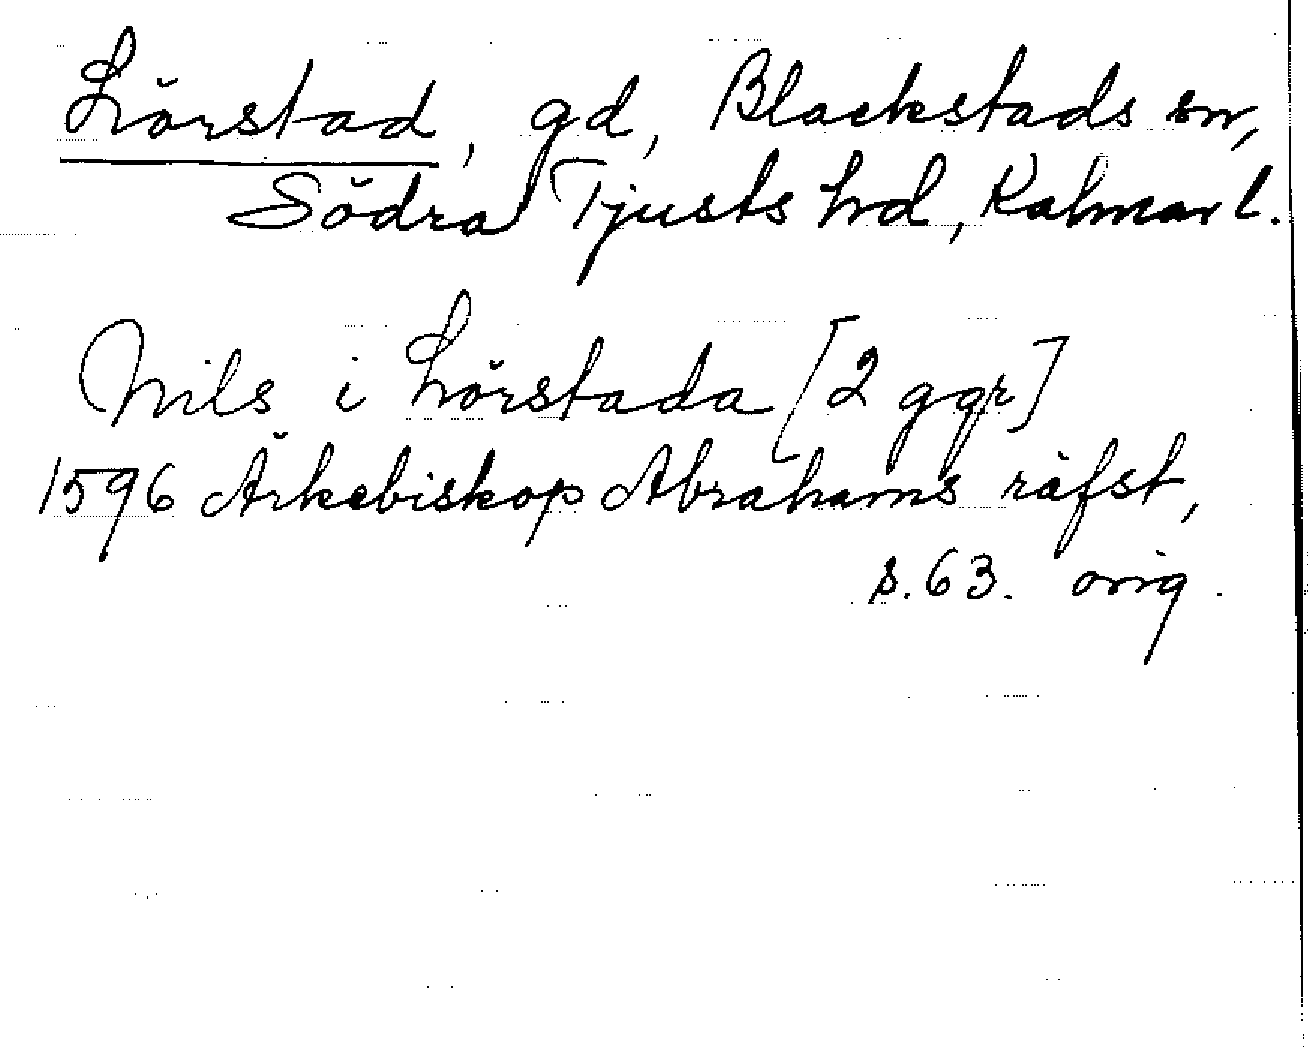 Lörstad, gd, Blackstads sn,
Södra Tjusts hrd, Kalmar l.
Nils i Lörstada [2 ggr]
1596 Ärkebiskop Abrahams räfst,
s. 63. orig.